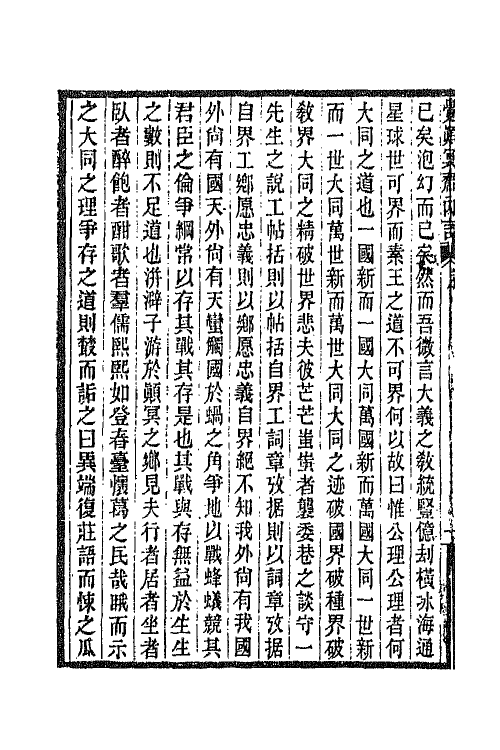 已矣泡幻而已矣然而吾微言大義之敎統豎億刧橫冰海通
星球世可界而素王之道不可界何以故曰惟公理公理者何
大同之道也一國新而一國大同萬國新而萬國大同一世新
而一世大同萬世新而萬世大同大同之迹破國界破種界破
敎界大同之精破世界悲夫彼芒芒蚩蚩者襲委巷之談守一
先生之說工帖括則以帖括自界工詞章攷据則以詞章攷据
自界工鄉愿忠義則以鄉愿忠義自界絕不知我外尙有我國
外尙有國天外尙有天蠻觸國於蝸之角爭地以戰蜂蟻競其
君臣之倫爭綱常以存其戰其存是也其戰與存無益於生生
之數則不足道也洴澼子游於顚冥之鄉見夫行者居者坐者
臥者醉飽者酣歌者羣儒熙熙如登春臺懷葛之民哉哦而示
之大同之理爭存之道則鼗而詬之曰異端復莊語而悚之瓜